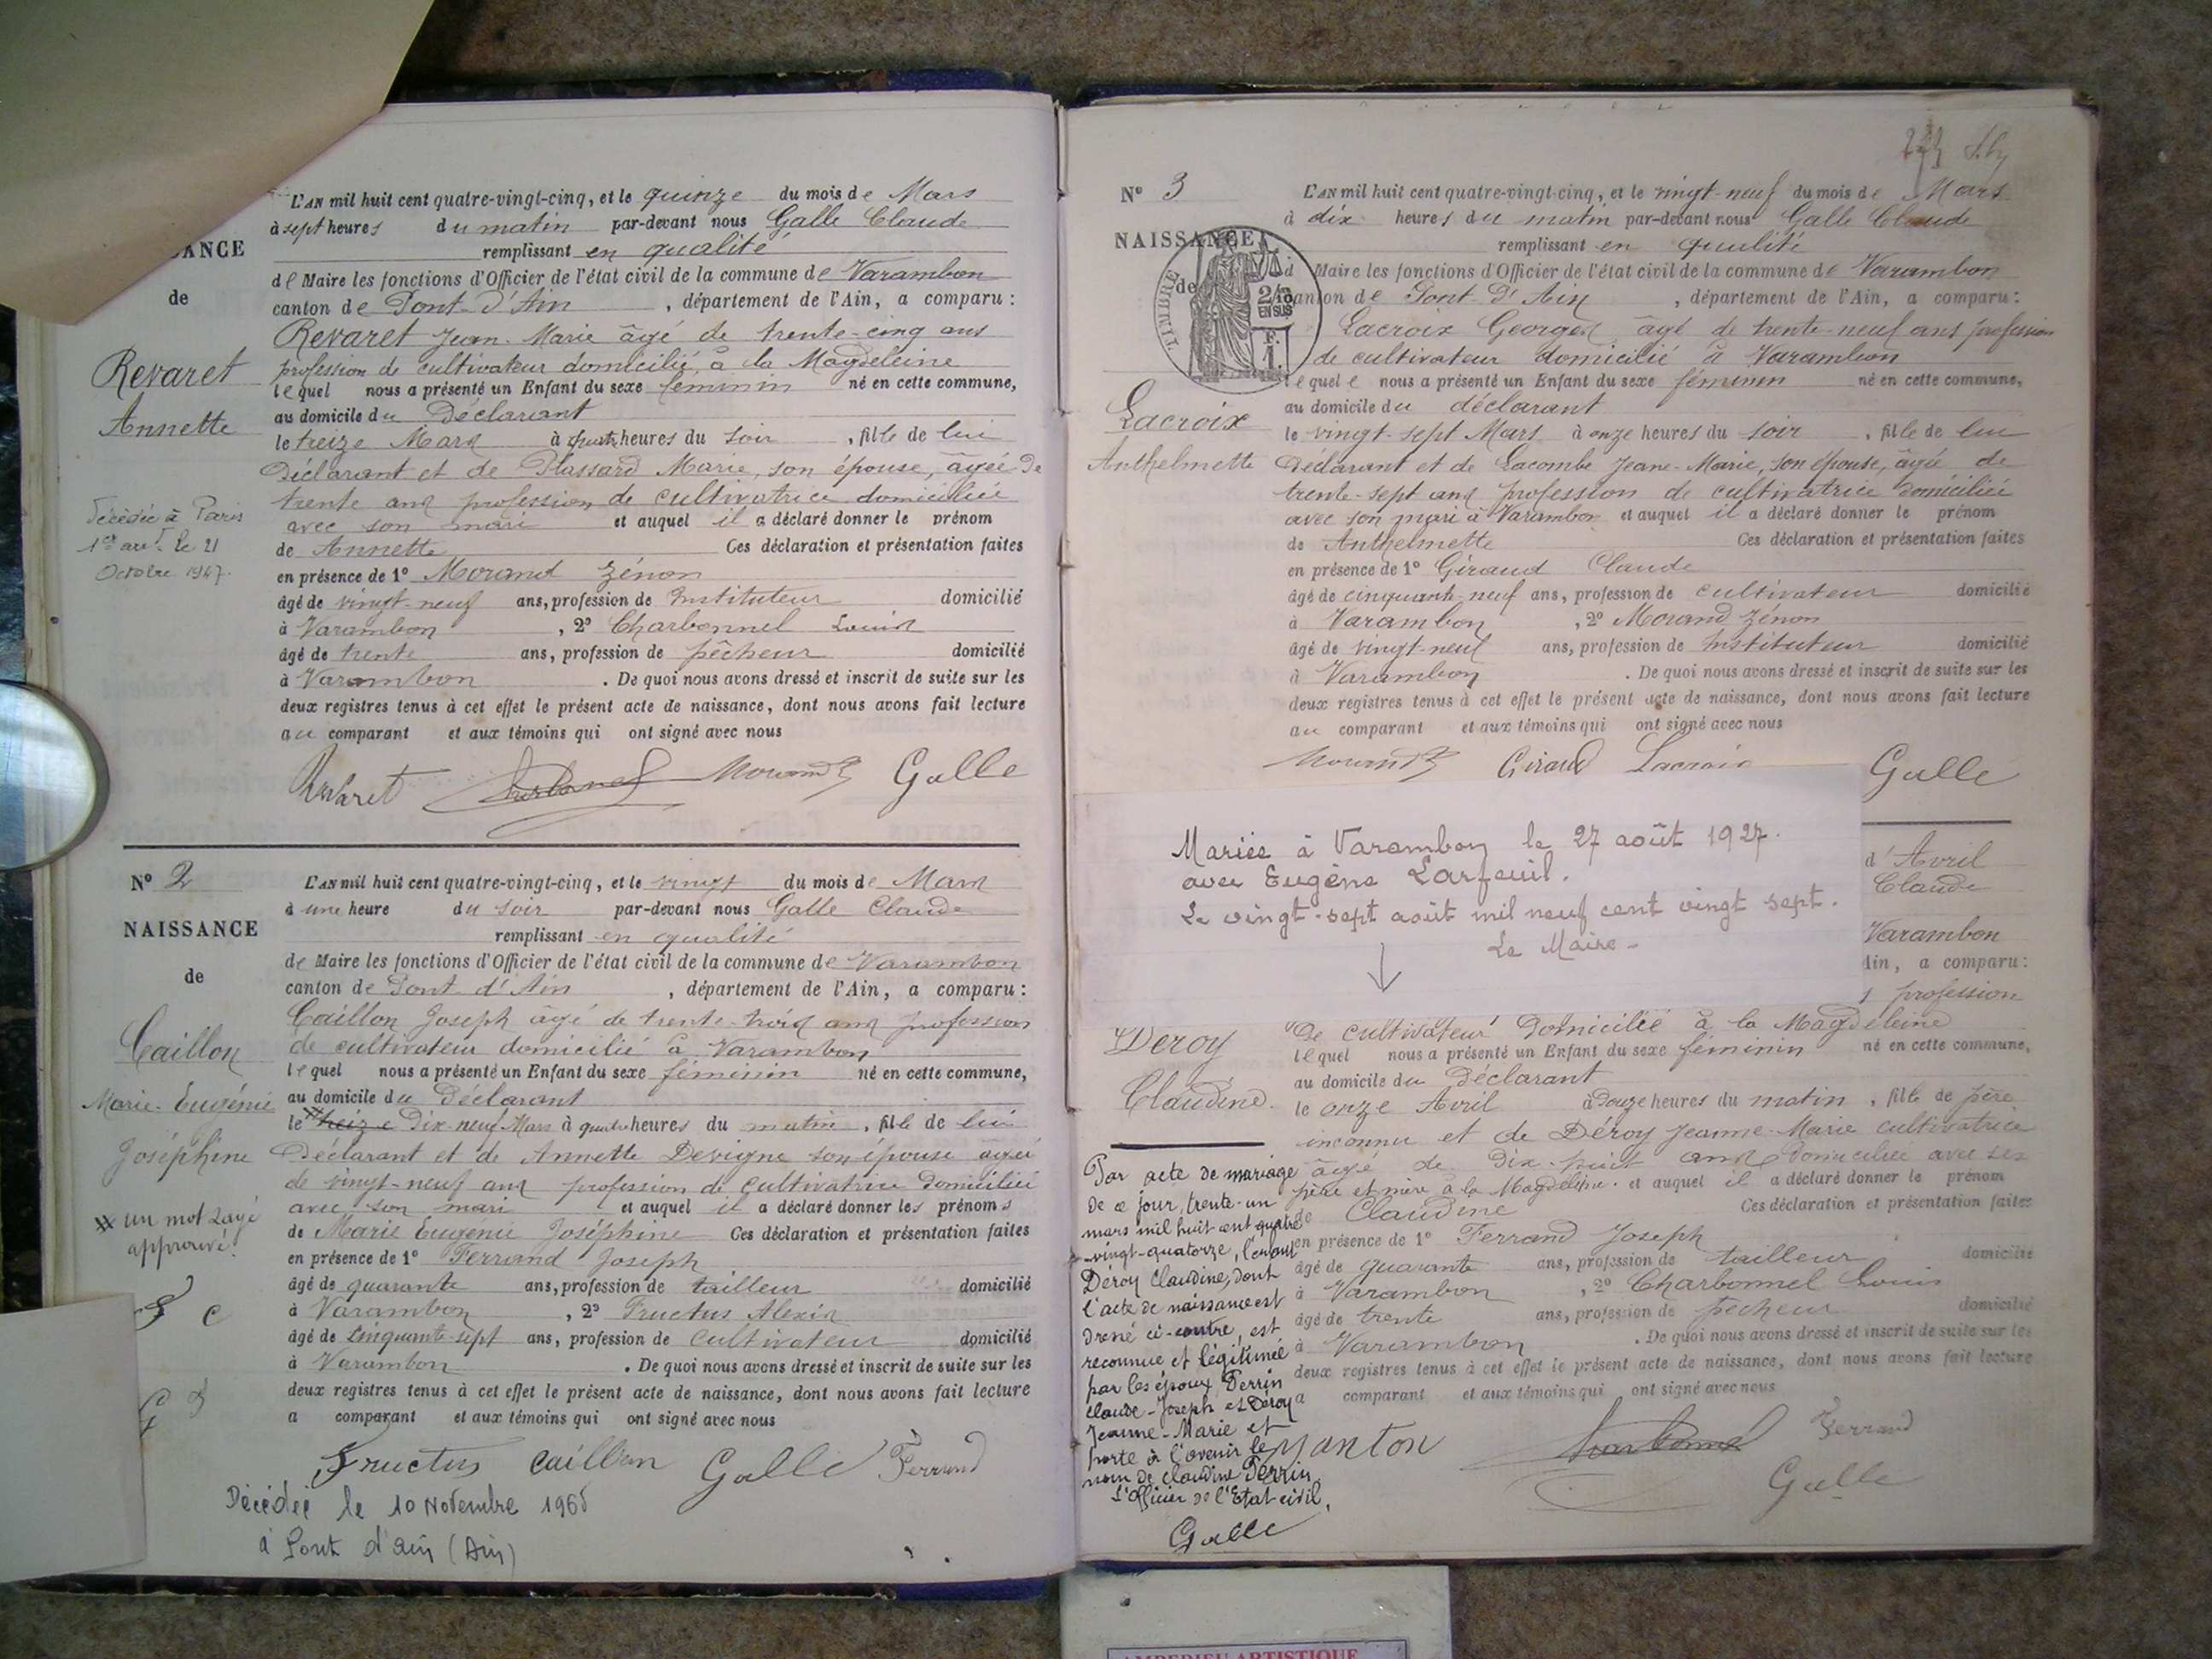 L'AN mil huit cent quatre-vingt-cinq, et le quinze du mois de Mars
à sept heures du matin par-devant nous Galle Claude
remplissant en qualité
de Maire les fonctions d'Officier de l'état civil de la commune de Varambon
canton de Pont-d'Ain, département de l'Ain, a comparu :
Revaret Jean-Marie âgé de trente-cinq ans
profession de cultivateur domicilié à la Magdeleine
lequel nous a présenté un Enfant du sexe féminin né en cette commune,
au domicile du Déclarant
le treize Mars à heures du soir, fille de lui
Déclarant et de Plassard Marie, son épouse, âgée de
trente ans profession de cultivatrice domiciliée
avec son mari et auquel il a déclaré donner le prénom
de Annette Ces déclaration et présentation faites
en présence de 1° Morand Zénon
âgé de vingt-neuf ans, profession de Instituteur domicilié
à Varambon, 2° Charbonnel Louis
âgé de trente ans, profession de pêcheur domicilié
à Varambon. De quoi nous avons dressé et inscrit de suite sur les
deux registres tenus à cet effet le présent acte de naissance, dont nous avons fait lecture
au comparant et aux témoins qui ont signé avec nous
Revaret Charbonnel Morand Z Galle
ANCE
de
Revaret
Annette
Décédée à Paris
1er arrt le 21
Octobre 1947.
N° 2
NAISSANCE
de
Caillon
Marie-Eugénie
Joséphine
un mot rayé
approuvé.
L'AN mil huit cent quatre-vingt-cinq, et le vingt du mois de Mars
à une heure du soir par-devant nous Galle Claude
remplissant en qualité
de Maire les fonctions d'Officier de l'état civil de la commune de Varambon
canton de Pont d'Ain, département de l'Ain, a comparu :
Caillon Joseph âgé de trente-trois ans profession
de cultivateur domicilié à Varambon
lequel nous a présenté un Enfant du sexe féminin né en cette commune,
au domicile du Déclarant
le treize Dix-neuf Mars à quatre heures du matin, fille de lui
Déclarant et de Annette Devigne son épouse âgée
de vingt-neuf ans profession de cultivatrice domiciliée
avec son mari et auquel il a déclaré donner les prénoms
de Marie Eugénie Joséphine Ces déclaration et présentation faites
en présence de 1° Ferrand Joseph
âgé de quarante ans, profession de tailleur domicilié
à Varambon, 2° Fructus Alexis
âgé de cinquante-sept ans, profession de cultivateur domicilié
à Varambon. De quoi nous avons dressé et inscrit de suite sur les
deux registres tenus à cet effet le présent acte de naissance, dont nous avons fait lecture
a comparant et aux témoins qui ont signé avec nous
Fructus Caillon Galle Ferrand
Décédée le 10 Novembre 1965
à Pont d'ain (Ain)
N° 3
NAISSANCE
de
TIMBRE
2/10
EN SUS
F.
1.
Lacroix
Anthelmette
L'AN mil huit cent quatre-vingt-cinq, et le vingt-neuf du mois de Mars
à dix heures du matin par-devant nous Galle Claude
remplissant en qualité
d Maire les fonctions d'Officier de l'état civil de la commune de Varambon
canton de Pont-d'Ain, département de l'Ain, a comparu :
Lacroix Georges âgé de trente-neuf ans profession
de cultivateur domicilié à Varambon
lequel nous a présenté un Enfant du sexe féminin né en cette commune,
au domicile du déclarant
le vingt-sept Mars à onze heures du soir, fille de lui
Déclarant et de Lacombe Jeane-Marie, son épouse, âgée de
trente-sept ans profession de cultivatrice domiciliée
avec son mari à Varambon et auquel il a déclaré donner le prénom
de Anthelmette Ces déclaration et présentation faites
en présence de 1° Giraud Claude
âgé de cinquante-neuf ans, profession de cultivateur domicilié
à Varambon, 2° Morand Zénon
âgé de vingt-neuf ans, profession de Instituteur domicilié
à Varambon. De quoi nous avons dressé et inscrit de suite sur les
deux registres tenus à cet effet le présent acte de naissance, dont nous avons fait lecture
au comparant et aux témoins qui ont signé avec nous
Morand Z Giraud Lacroix Galle
Mariée à Varambon le 27 août 1927.
avec Eugène Larfeuil.
Le vingt-sept août mil neuf cent vingt sept.
Le Maire -
d'Avril
Claude
Varambon
Ain, a comparu :
profession
Deroy
Claudine
de cultivateur domicilié à la Magdeleine
lequel nous a présenté un Enfant du sexe féminin né en cette commune,
au domicile du Déclarant
le onze Avril à Douze heures du matin, fille de père
inconnu et de Déroy Jeanne-Marie cultivatrice
âgé de Dix-huit ans domiciliée avec ses
père et mère à la Magdeleine. et auquel il a déclaré donner le prénom
de Claudine Ces déclaration et présentation faites
en présence de 1° Ferrand Joseph
âgé de quarante ans, profession de tailleur domicilié
à Varambon, 2° Charbonnel Louis
âgé de trente ans, profession de pêcheur domicilié
à Varambon. De quoi nous avons dressé et inscrit de suite sur les
deux registres tenus à cet effet le présent acte de naissance, dont nous avons fait lecture
a comparant et aux témoins qui ont signé avec nous
Manton Charbonnel Ferrand
Galle
Par acte de mariage
de ce jour, trente-un
mars mil huit cent quatre
-vingt-quatorze, l'enfant
Déroy Claudine, dont
l'acte de naissance est
dressé ci-contre, est
reconnue et légitimée
par les époux Perrin
Claude-Joseph et Déroy
Jeanne-Marie et
porte à l'avenir le
nom de Claudine Perrin.
L'Officier de l'Etat civil,
Galle
AMBERIEU ARTISTIQUE